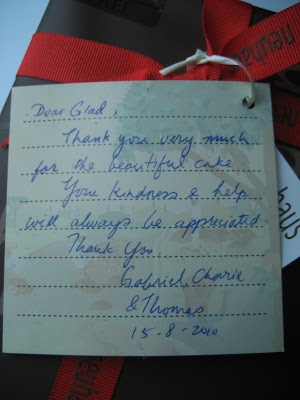 neuhaus
Dear Glad,
Thank you very much
for the beautiful cake
Your kindness & help
will always be appreciated.
Thank You
Gabriel, Charie
& Thomas
15-8-2010
haus
neuhaus